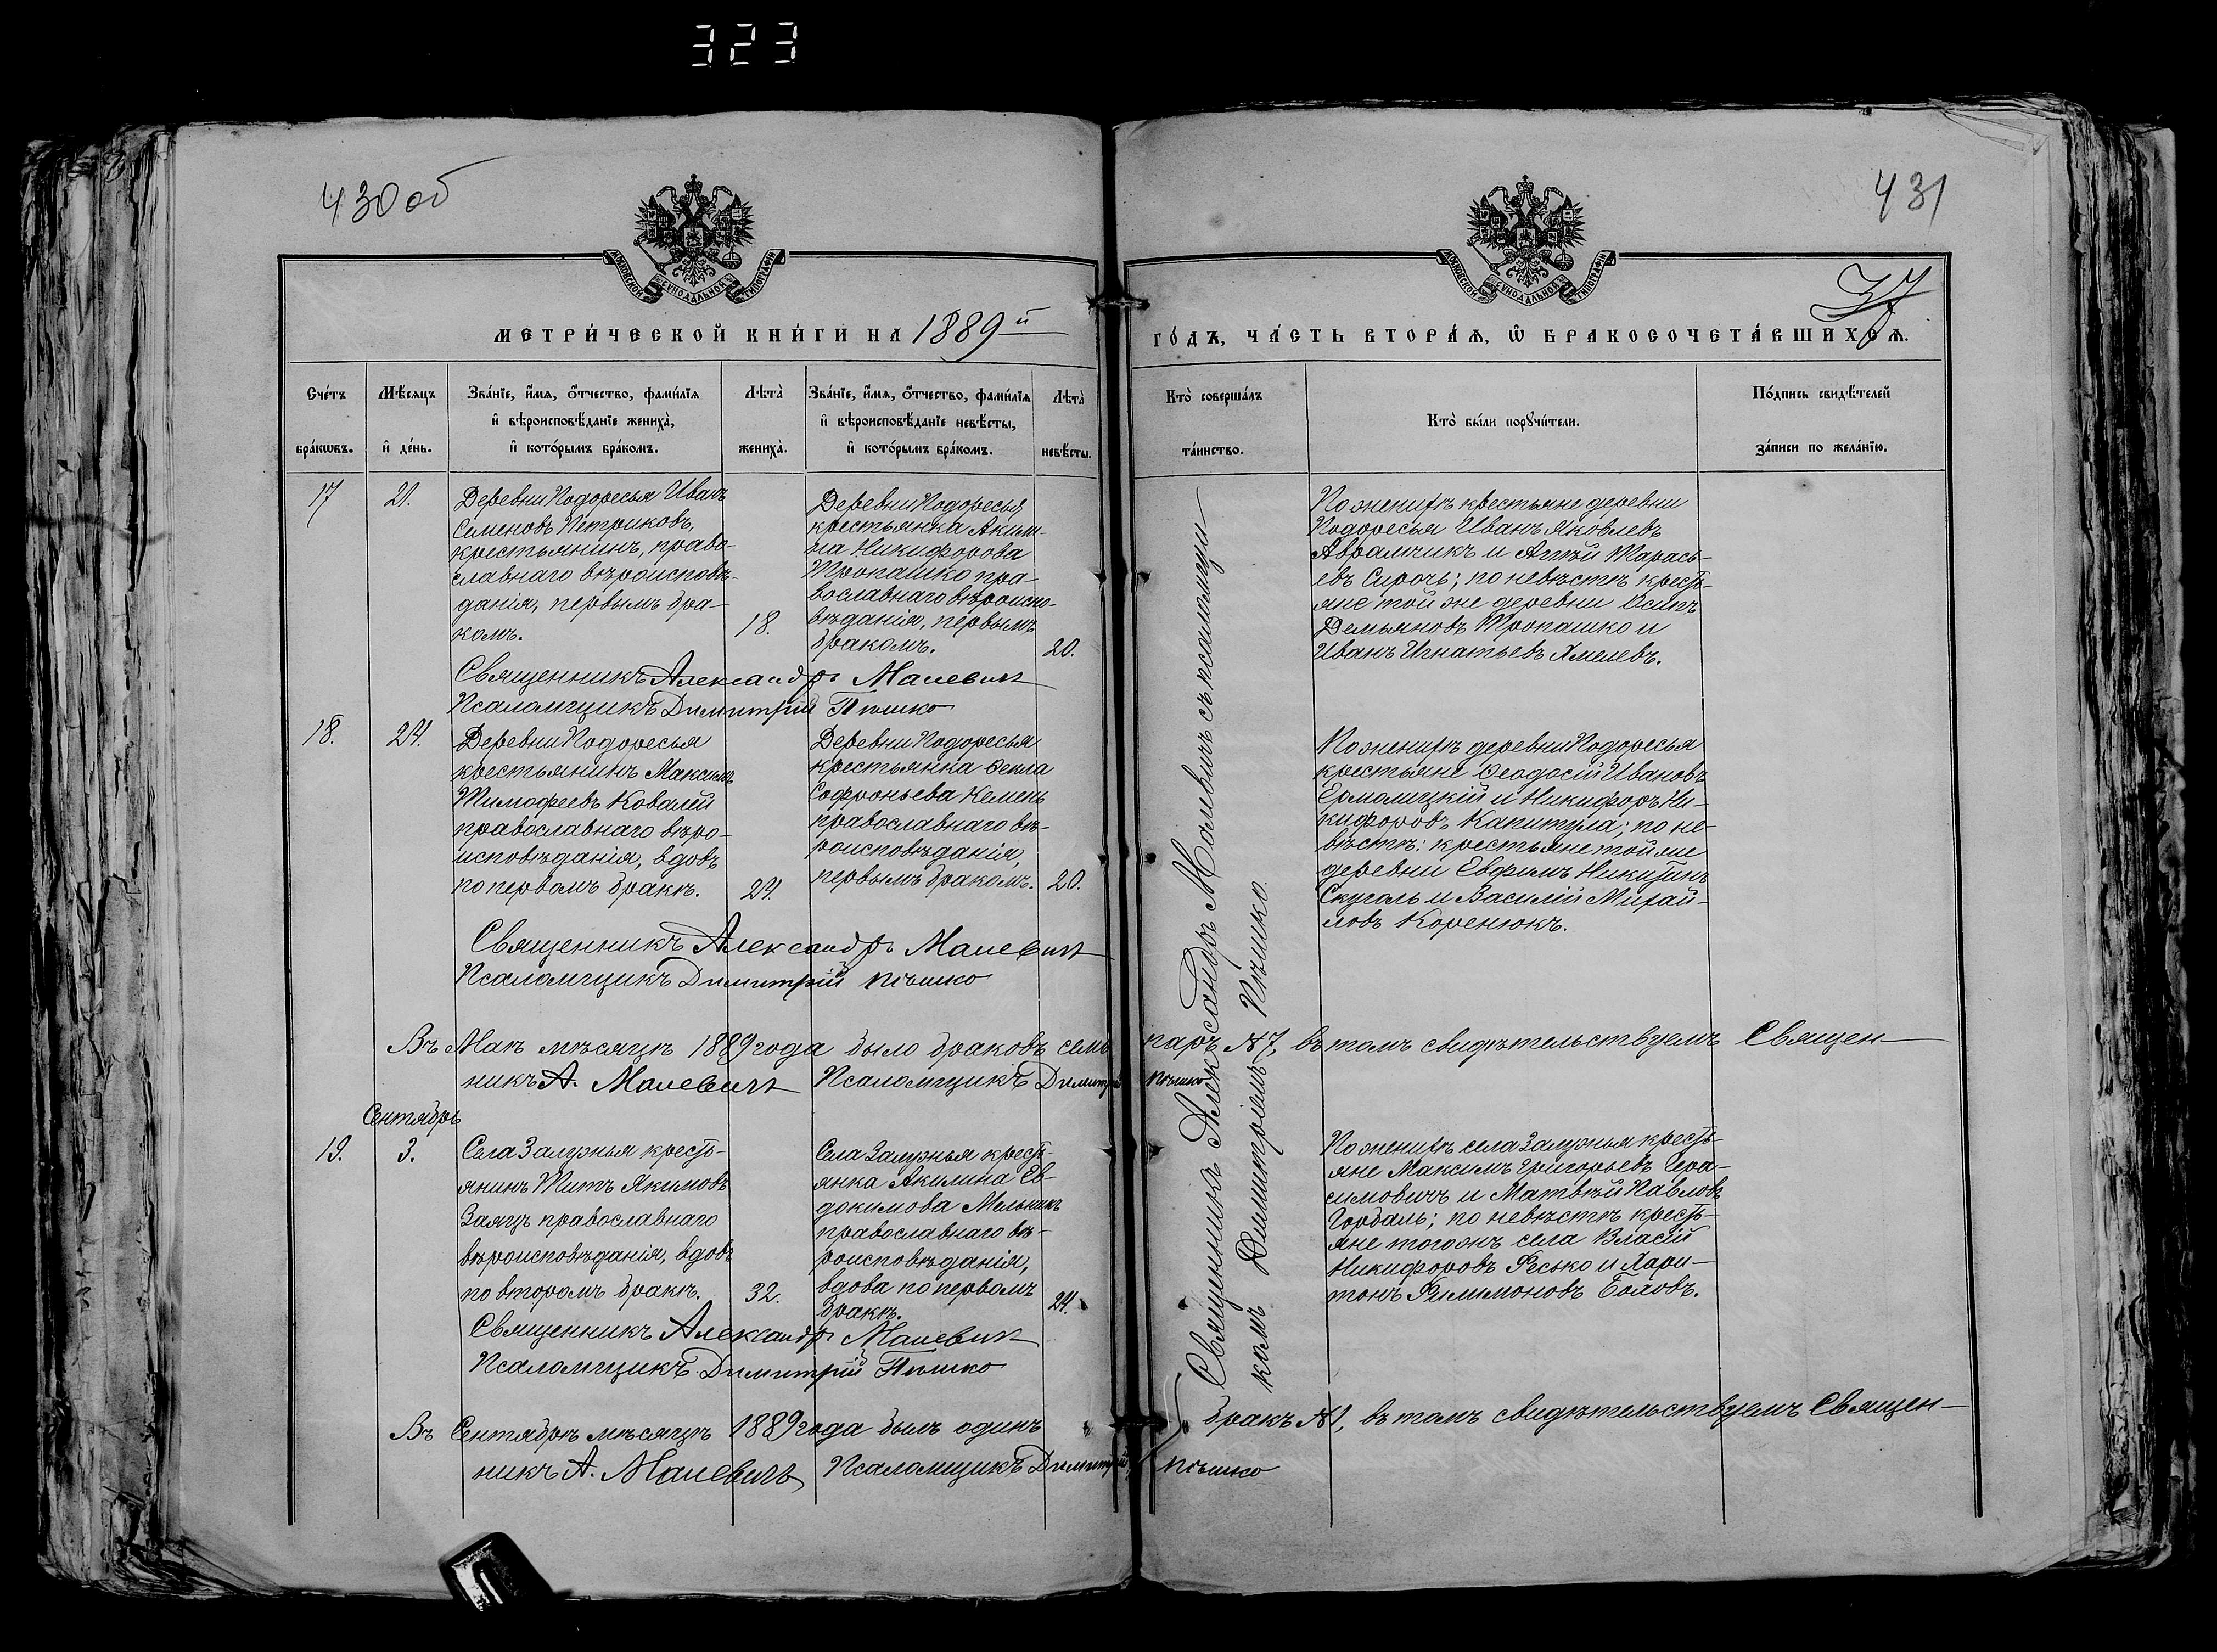 323
430 об
431
37
МОСКОВСКОЙ СѴНОДАЛЬНОЙ ТИПОГРАФІИ
МОСКОВСКОЙ СѴНОДАЛЬНОЙ ТИПОГРАФІИ
МЕТРИ́ЧЕСКОЙ КНИ́ГИ НА 1889 й
ГО́ДЪ, ЧА́СТЬ ВТОРА́Ѧ, Ѿ БРАКОСОЧЕТА́ВШИХСѦ.
Сче́тъ
бра́кѡвъ.
Мѣ́сѧцъ
и҆ де́нь.
Зва́нїе, и҆́мѧ, ѻ҆́тчество, фами́лїѧ
и҆ вѣроисповѣ́данїе жениха̀,
и҆ кото́рымъ бра́комъ.
Лѣ́та
жениха̀.
Зва́нїе, и҆́мѧ, ѻ҆́тчество, фами́лїѧ
и҆ вѣроисповѣ́данїе невѣ́сты,
и҆ кото́рымъ бра́комъ.
Лѣ́та
невѣ́сты.
Кто̀ соверша́лъ
та́инство.
Кто̀ бы́ли порꙋчи́тели.
По́дпись свидѣ́телей
за́писи по жела́нїю.
17
21.
Деревни Подоресья Иванъ
Семеновъ Петриковъ,
крестьянинъ, право-
славнаго вѣроисповѣ-
данія, первымъ бра-
комъ.
18.
Деревни Подоресья
крестьянка Акили-
на Никифорова
Тропашко, пра-
вославнаго вѣроиспо-
вѣданія, первымъ
бракомъ.
20.
По женихѣ крестьяне деревни
Подоресья Иванъ Яковлевъ
Аврамчикъ и Тарась-
евъ Сирочъ; по невѣстѣ кресть-
яне той же деревни Осипъ
Демьяновъ Тропашко и
Иванъ Игнатьевъ Хмелевъ.
Священникъ Александръ Малевичъ
Псаломщикъ Димитрій Пѣшко
18.
24.
Деревни Подоресья
крестьянинъ Максимъ
Тимофеевъ Ковалей
православнаго вѣро-
исповѣданія, вдовъ
по первомъ бракѣ.
24.
Деревни Подоресья
крестьянка Ѳекла
Софроньева Кемень
православнаго вѣ-
роисповѣданія,
первымъ бракомъ.
20.
По женихѣ деревни Подоресья
крестьяне Ѳеодосій Ивановъ
Ермолицкій и Никифоръ Ни-
кифоровъ Капитула; по не-
вѣстѣ: крестьяне той же
деревни Евфимъ Никитинъ
Скуголь и Василій Михай-
ловъ Коренюкъ.
Священникъ Александръ Малевичъ
Псаломщикъ Димитрій Пѣшко
Священникъ Александръ Малевичъ съ псаломщи-
комъ Димитріемъ Пѣшко.
Въ Маѣ мѣсяцѣ 1889 года было браковъ семь паръ №7, въ томъ свидѣтельствуемъ Священ-
никъ А. Малевичъ Псаломщикъ Димитрій Пѣшко
Сентябрь
19.
3.
Села Залужья кресть-
янинъ Титъ Якимовъ
Заяцъ православнаго
вѣроисповѣданія, вдовъ
по второмъ бракѣ.
32.
Села Залужья кресть-
янка Акилина Ев-
докимова Мельникъ
православнаго вѣ-
роисповѣданія,
вдова по первомъ
бракѣ.
24.
По женихѣ села Залужья кресть-
яне Максимъ Григорьевъ Гера-
симовичъ и Матвѣй Павловъ
Горбаль; по невѣстѣ кресть-
яне тогожъ села Власій
Никифоровъ Фесько и Хари-
тонъ Филимоновъ Боловъ.
Священникъ Александръ Малевичъ
Псаломщикъ Димитрій Пѣшко
Въ Сентябрѣ мѣсяцѣ 1889 года былъ одинъ бракъ №1, въ томъ свидѣтельствуемъ Священ-
никъ А. Малевичъ Псаломщикъ Димитрій Пѣшко